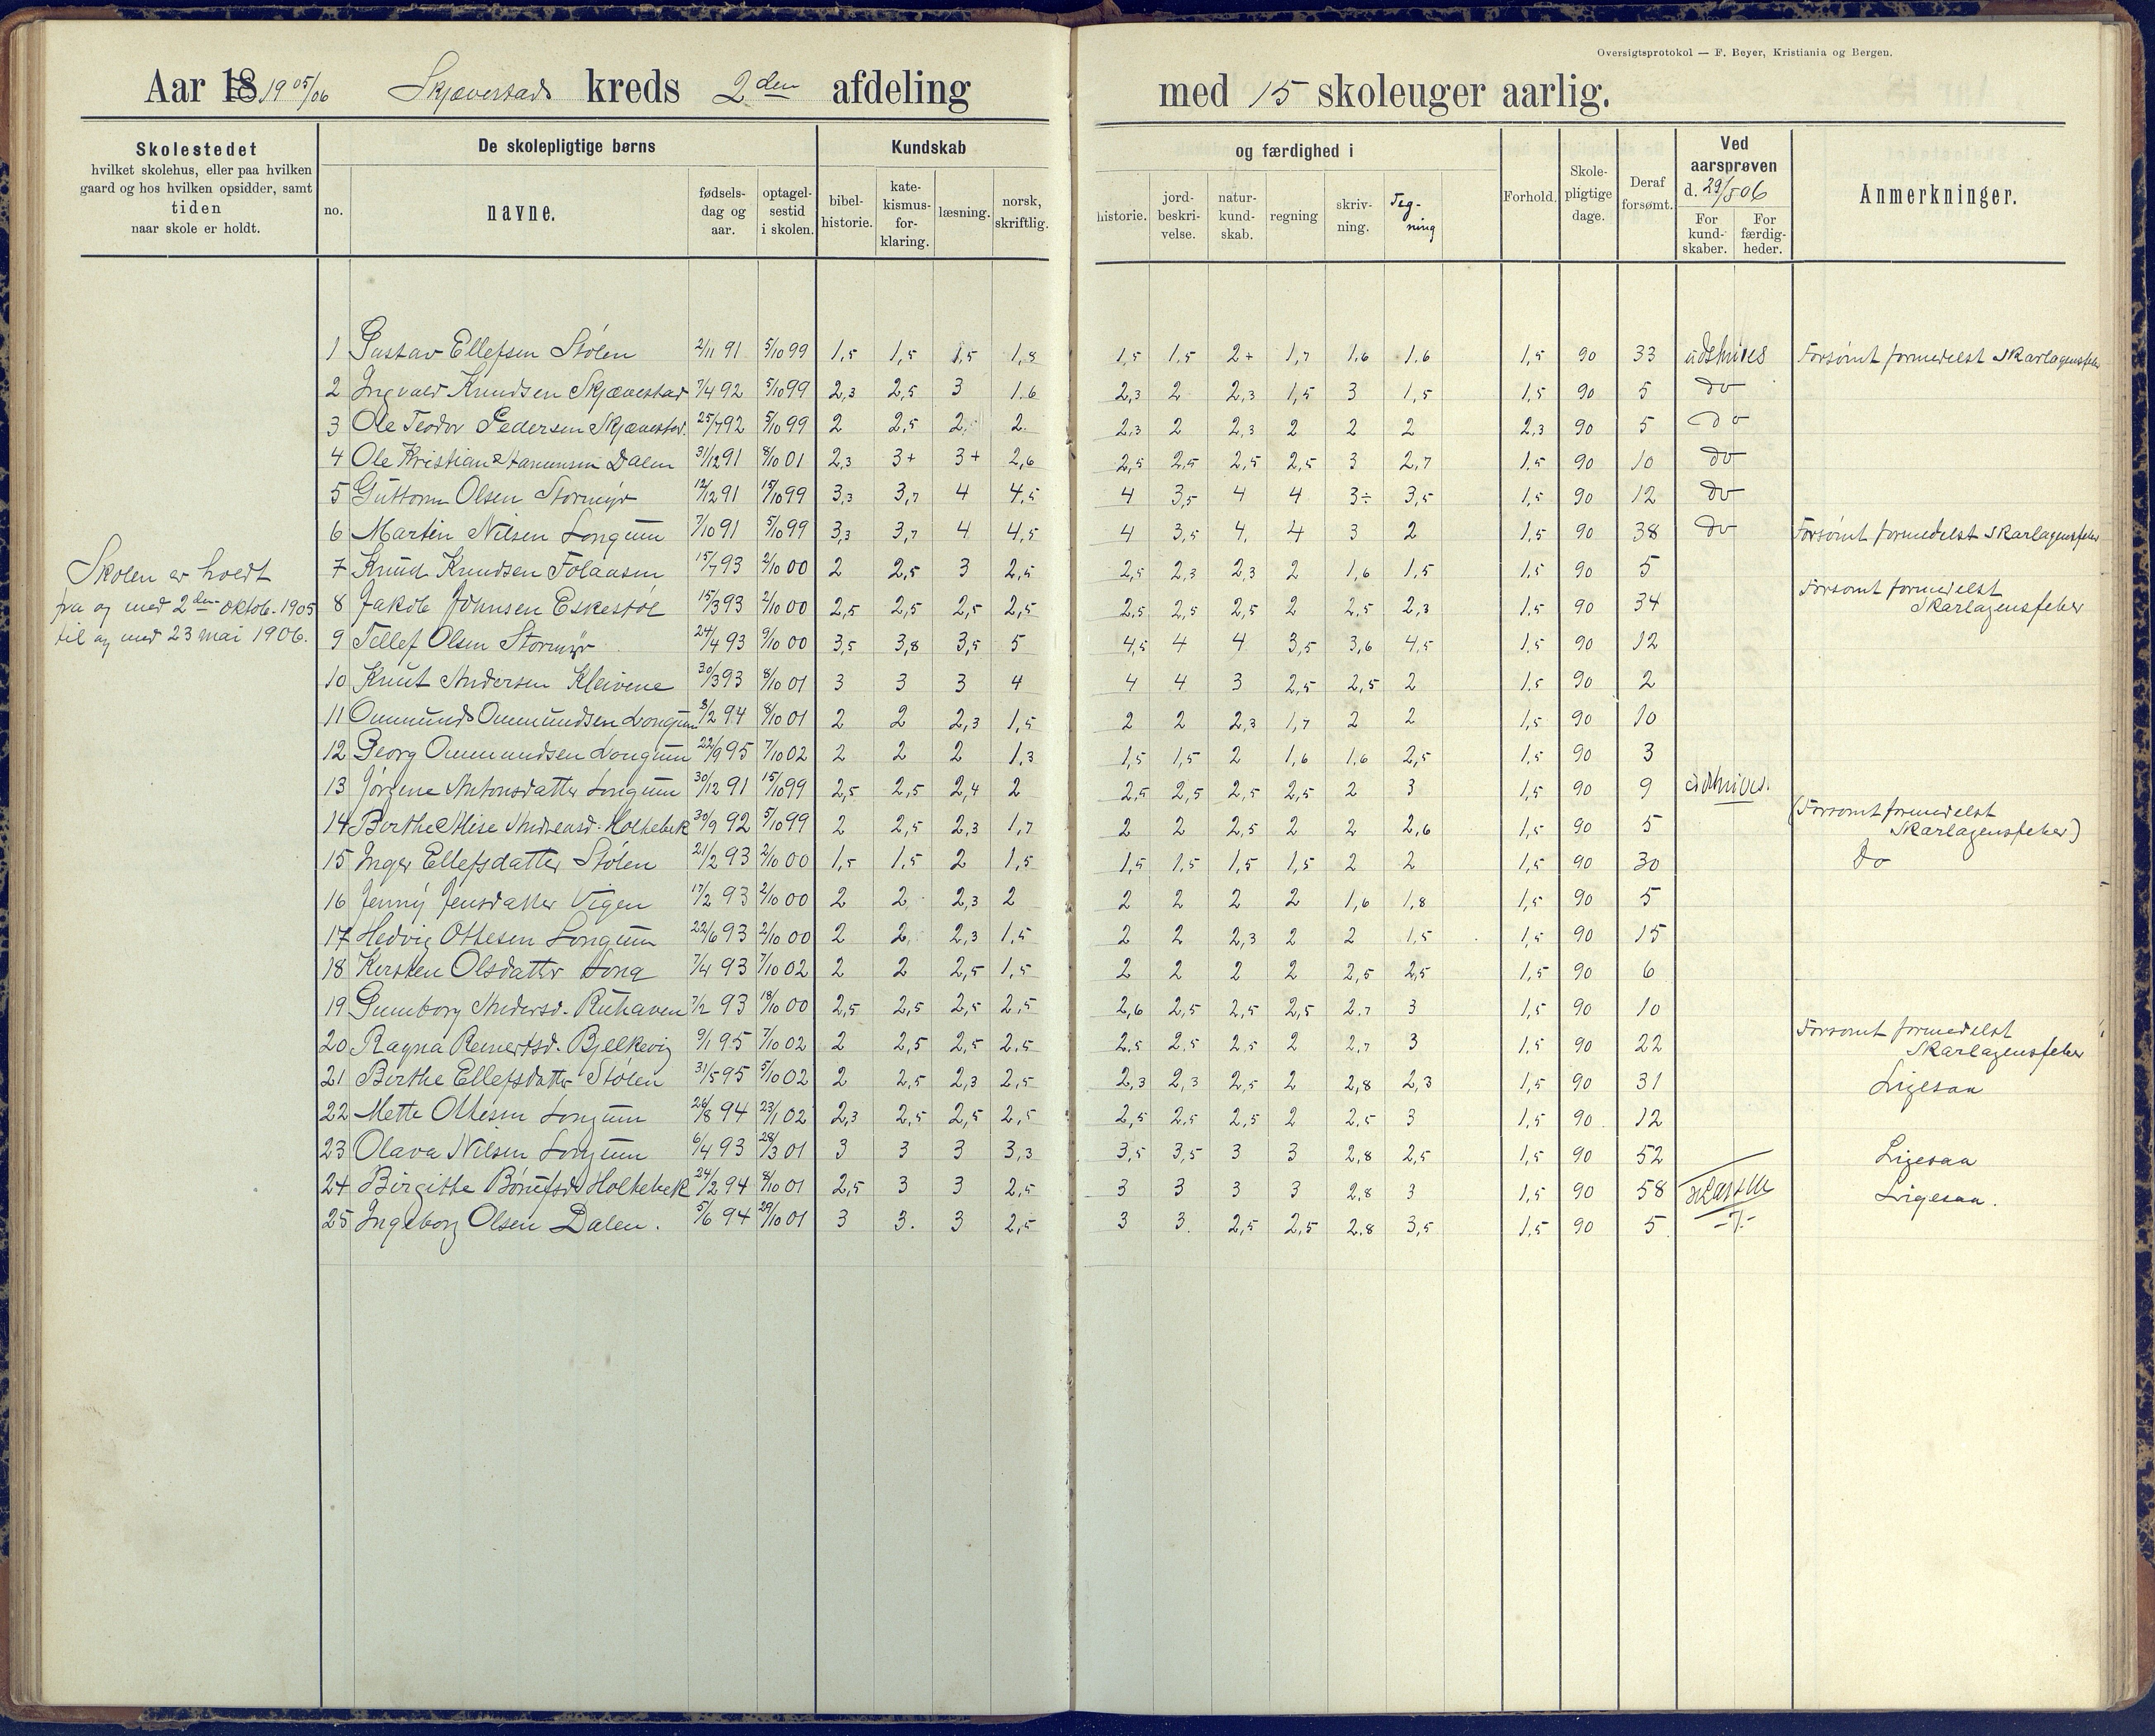 Oversigtsprotokol — F. Beyer, Kristiania og Bergen.
Aar 18 19 05/06 Skjævestads kreds 2den afdeling med 15 skoleuger aarlig.
Skolestedet hvilket skolehus, eller paa hvilken gaard og hos hvilken opsidder, samt tiden naar skole er holdt.
De skolepligtige børns
no. navne. fødselsdag og aar. optagelsestid i skolen.
Kundskab og færdighed i
bibelhistorie. katekismusforklaring. læsning. norsk, skriftlig. historie. jordbeskrivelse. naturkundskab. regning skrivning. Tegning
Forhold. Skolepligtige dage. Deraf forsømt.
Ved aarsprøven d. 29/5 06 For kundskaber. For færdigheder.
Anmerkninger.
Skolen er holdt
fra og med 2den oktob. 1905
til og med 23 mai 1906.
1 Gustav Ellefsen Stølen 2/11 91 5/10 99 1,5 1,5 1,5 1,8 1,5 1,5 2+ 1,7 1,6 1,6 1,5 90 33 udskrives Forsømt formedelst Skarlagensfeber
2 Ingvald Knudsen Skjævestad 7/4 92 5/10 99 2,3 2,5 3 1,6 2,3 2 2,3 1,5 3 1,5 1,5 90 5 do
3 Ole Teodor Pedersen Skjævestad. 25/7 92 5/10 99 2 2,5 2 2 2,3 2 2,3 2 2 2 2,3 90 5 do
4 Ole Kristian Dalen 31/12 91 8/10 01 2,3 3+ 3+ 2,6 2,5 2,5 2,5 2,5 3 2,7 1,5 90 10 do
5 Guttorm Olsen Stormyr 12/12 91 15/10 99 3,3 3,7 4 4,5 4 3,5 4 4 3÷ 3,5 1,5 90 12 do
6 Martin Nilsen Longum 7/10 91 5/10 99 3,3 3,7 4 4,5 4 3,5 4, 4 3 2 1,5 90 38 do Forsømt formedelst Skarlagensfeber
7 Knud Knudsen Folaasen 15/7 93 2/10 00 2 2,5 3 2,5 2,5 2,3 2,3 2 1,6 1,5 1,5 90 5
8 Jakob Johnsen Eskestøl 15/3 93 2/10 00 2,5 2,5 2,5 2,5 2,5 2,5 2,5 2 2,5 2,3 1,5 90 34 Forsømt formedelst Skarlagensfeber
9 Tellef Olsen Stormyr 24/4 93 9/10 00 3,5 3,8 3,5 5 4,5 4 4 3,5 3,6 4,5 1,5 90 12
10 Knut Andersen Kleivene 30/3 93 8/10 01 3 3 3 4 4 4 3 2,5 2,5 2 1,5 90 2
11 Ommund Ommundsen Longum 3/2 94 8/10 01 2 2 2,3 1,5 2 2 2,3 1,7 2 2 1,5 90 10
12 Georg Ommundsen Longum 22/9 95 7/10 02 2 2 2 1,3 1,5 1,5 2 1,6 1,6 2,5 1,5 90 3
13 Jørgine Antonsdatter Longum 30/12 91 15/10 99 2,5 2,5 2,4 2 2,5 2,5 2,5 2,5 2 3 1,5 90 9 udskrives.
14 Birthe Alise Andreasd. Holtebek 30/9 92 5/10 99 2 2,5 2,3 1,7 2 2 2,5 2 2 2,6 1,5 90 5 (Forsømt formedelst Skarlagensfeber)
15 Inger Ellefsdatter Stølen 21/2 93 2/10 00 1,5 1,5 2 1,5 1,5 1,5 1,5 1,5 2 2 1,5 90 30 do
16 Jenny Jensdatter Vigen 17/2 93 2/10 00 2 2 2,3 2 2 2 2 2 1,6 1,8 1,5 90 5
17 Hedvig Ottesen Longum 22/6 93 2/10 00 2 2 2,3 1,5 2 2 2,3 2 2 1,5 1,5 90 15
18 Kirsten Olsdatter Long 7/4 93 7/10 02 2 2 2,5 1,5 2 2 2 2 2,5 2,5 1,5 90 6
19 Gunborg Andersd. Ruhaven 7/2 93 18/10 00 2,5 2,5 2,5 2,5 2,6 2,5 2,5 2,5 2,7 3 1,5 90 10
20 Ragna Reinertsd. Bjelkevig 9/1 95 7/10 02 2 2,5 2,5 2,5 2,5 2,5 2,5 2 2,7 3 1,5 90 22 Forsømt formedelst Skarlagensfeber
21 Birthe Ellefsdatter Stølen 31/5 95 5/10 02 2 2,5 2,3 2,5 2,3 2,3 2,5 2 2,8 2,3 1,5 90 31 Ligesaa
22 Mette Ottesen Longum 26/8 94 23/1 02 2,3 2,5 2,5 2,5 2,5 2,5 2,5 2 2,5 3 1,5 90 12
23 Olava Nilsen Longum 6/4 93 28/3 01 3 3 3 3,3 3,5 3,5 3 3 2,8 2,5 1,5 90 52 Ligesaa
24 Birgitte Holtebek 24/2 94 8/10 01 2,5 3 3 2,5 3 3 3 3 2,8 3 1,5 90 58 Ligesaa.
25 Ingeborg Olsen Dalen. 5/6 94 29/10 01 3 3. 3 2,5 3 3 2,5 2,5 2,8 3,5 1,5 90 5